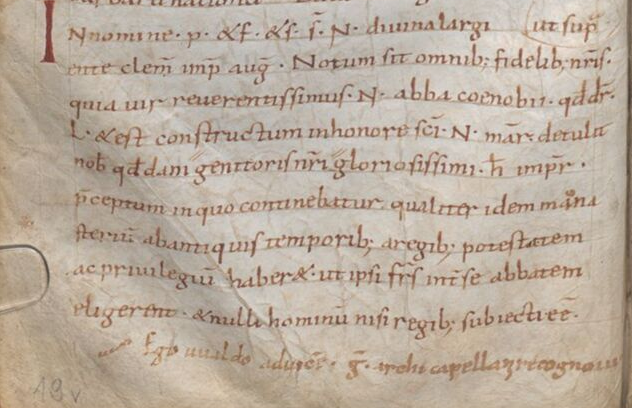 INnomine · p · &f · &s · s̄ · N · divina largi ut sup̄
ente clem̄ imp̄ auḡ · Notum sit omnib; fidelib; nr̄is ·
quia uir reuerentissimus · N · abba coenobii · qd dr̄ ·
L · & est constructum in honore sc̄i · N · mar̄ · detulit
nob qd dam genitoris nr̄i gloriosissimi · h̄ impr̄ ·
p̄ceptum in quo continebatur qualiter idem mona
steriū abantiquis temporib; aregib; potestatem
ac priuilegiū haber& · ut ipsi fr̄s int̄ se abbatem
eligerent · & nulli hominū nisi regib; subiecti eē ·
Ego uualdo aduicē · g̅ · archicapell recognoui
19v